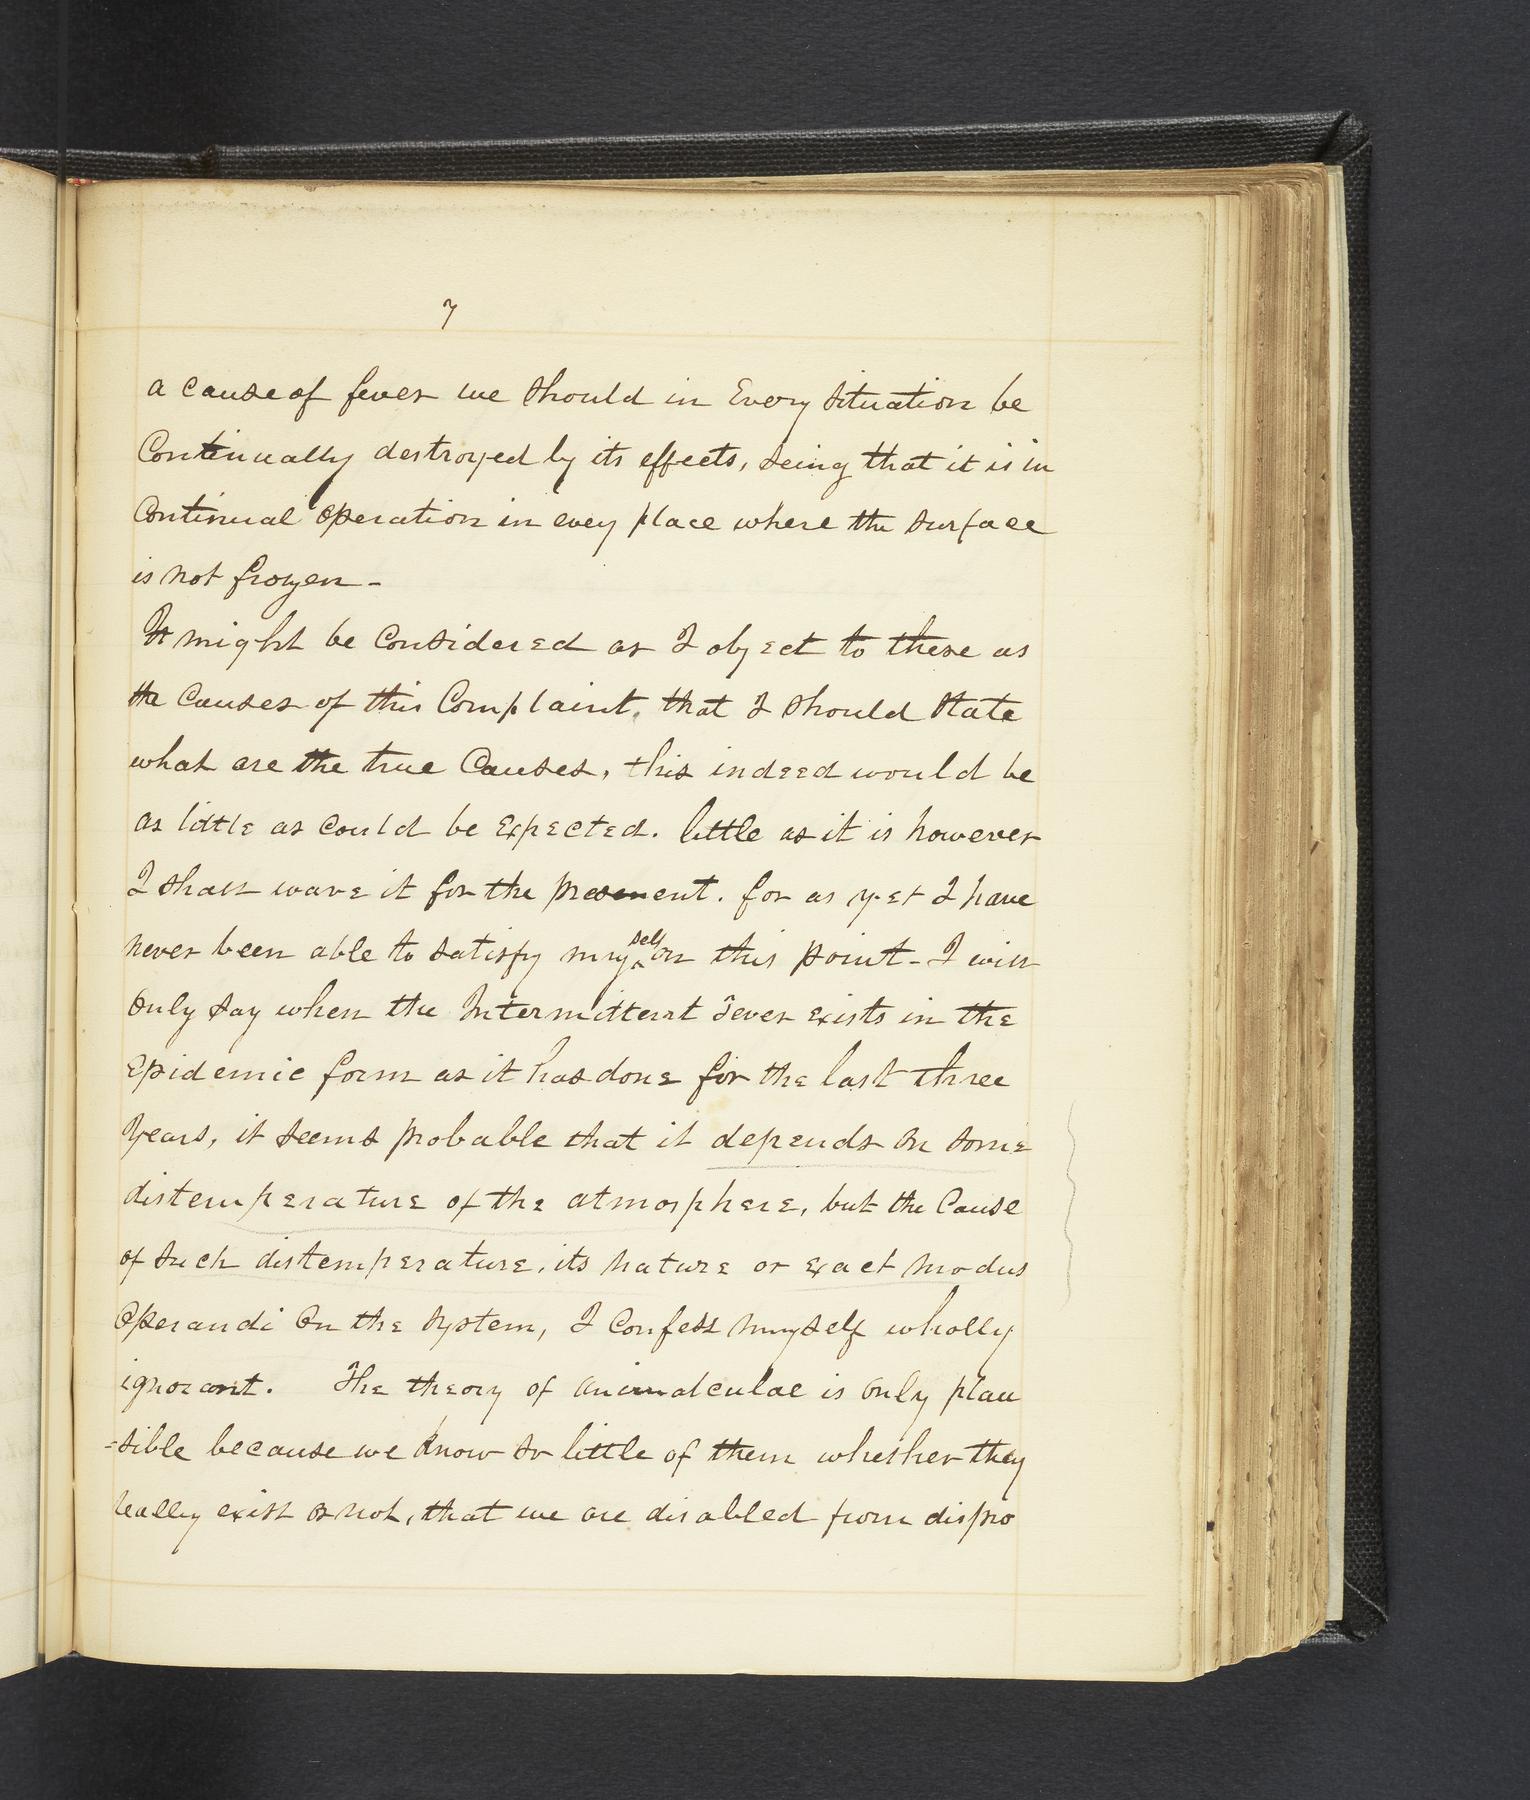 7
a cause of fever we should in Every situation be
Continually destroyed by its effects, seing that it is in
Continual operation in evey place where the surface
is not frozen -
It might be Considered as I object to these as
the Causes of this Complaint, that I should state
what are the true Causes, this indeed would be
as little as could be Expected. little as it is however
I shall wave it for the present. for as yet I have
never been able to satisfy myself on this point - I will
Only say when the Intermittent Fever exists in the
Epidemic form as it has done for the last three
Years, it seems probable that it depends on some
distemperature of the atmosphere, but the Cause
of such distemperature, its nature or exact modus
Operandi On the system, I Confess myself wholly
ignorant. The theory of animalculae is only plau
=sible because we know so little of them whether they
really exist or not, that we are disabled from dispro